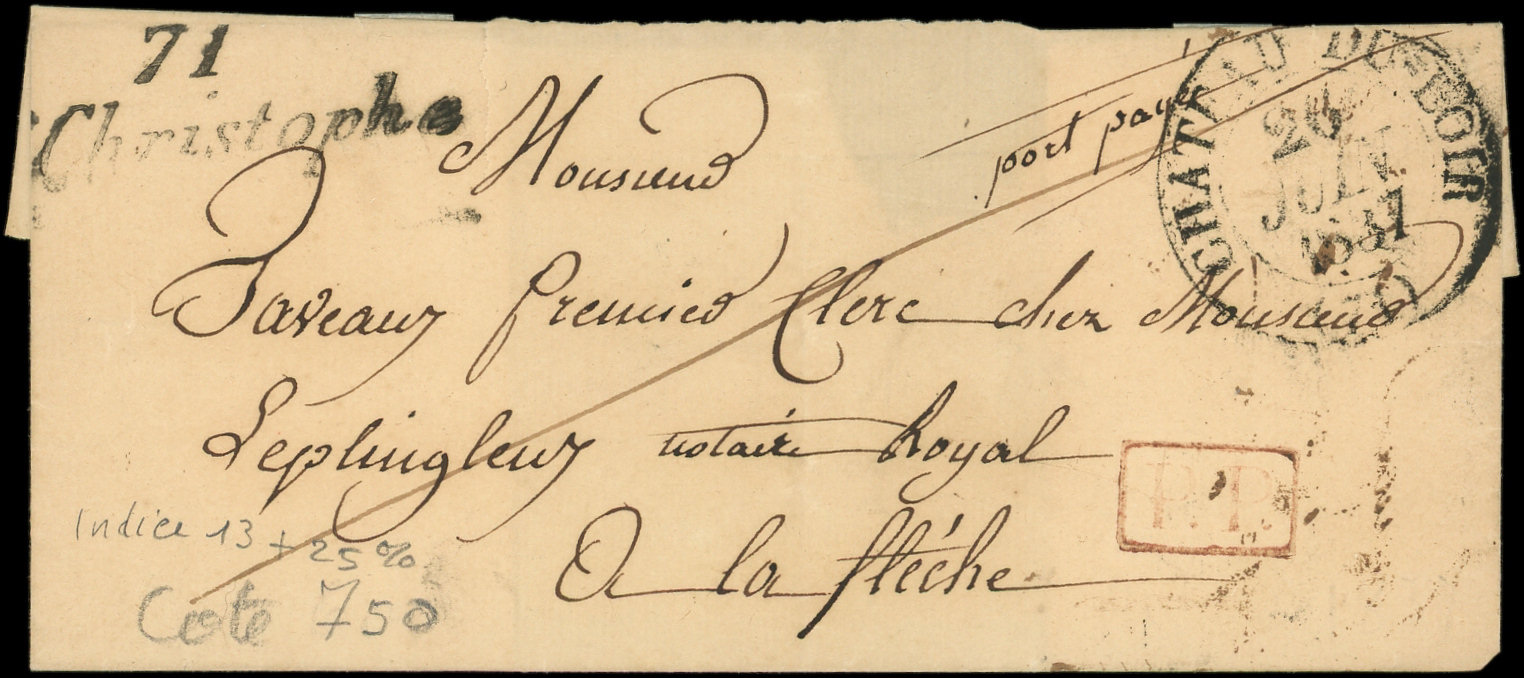 71
Christophe
port payé
CHATEAU-DU-LOIR
26
JUIN
1837
Monsieur
Taveaux premier Clerc chez Monsieur
Leplingleux notaire Royal
A la fléche
P.P.
Indice 13 + 25%
Cote 750